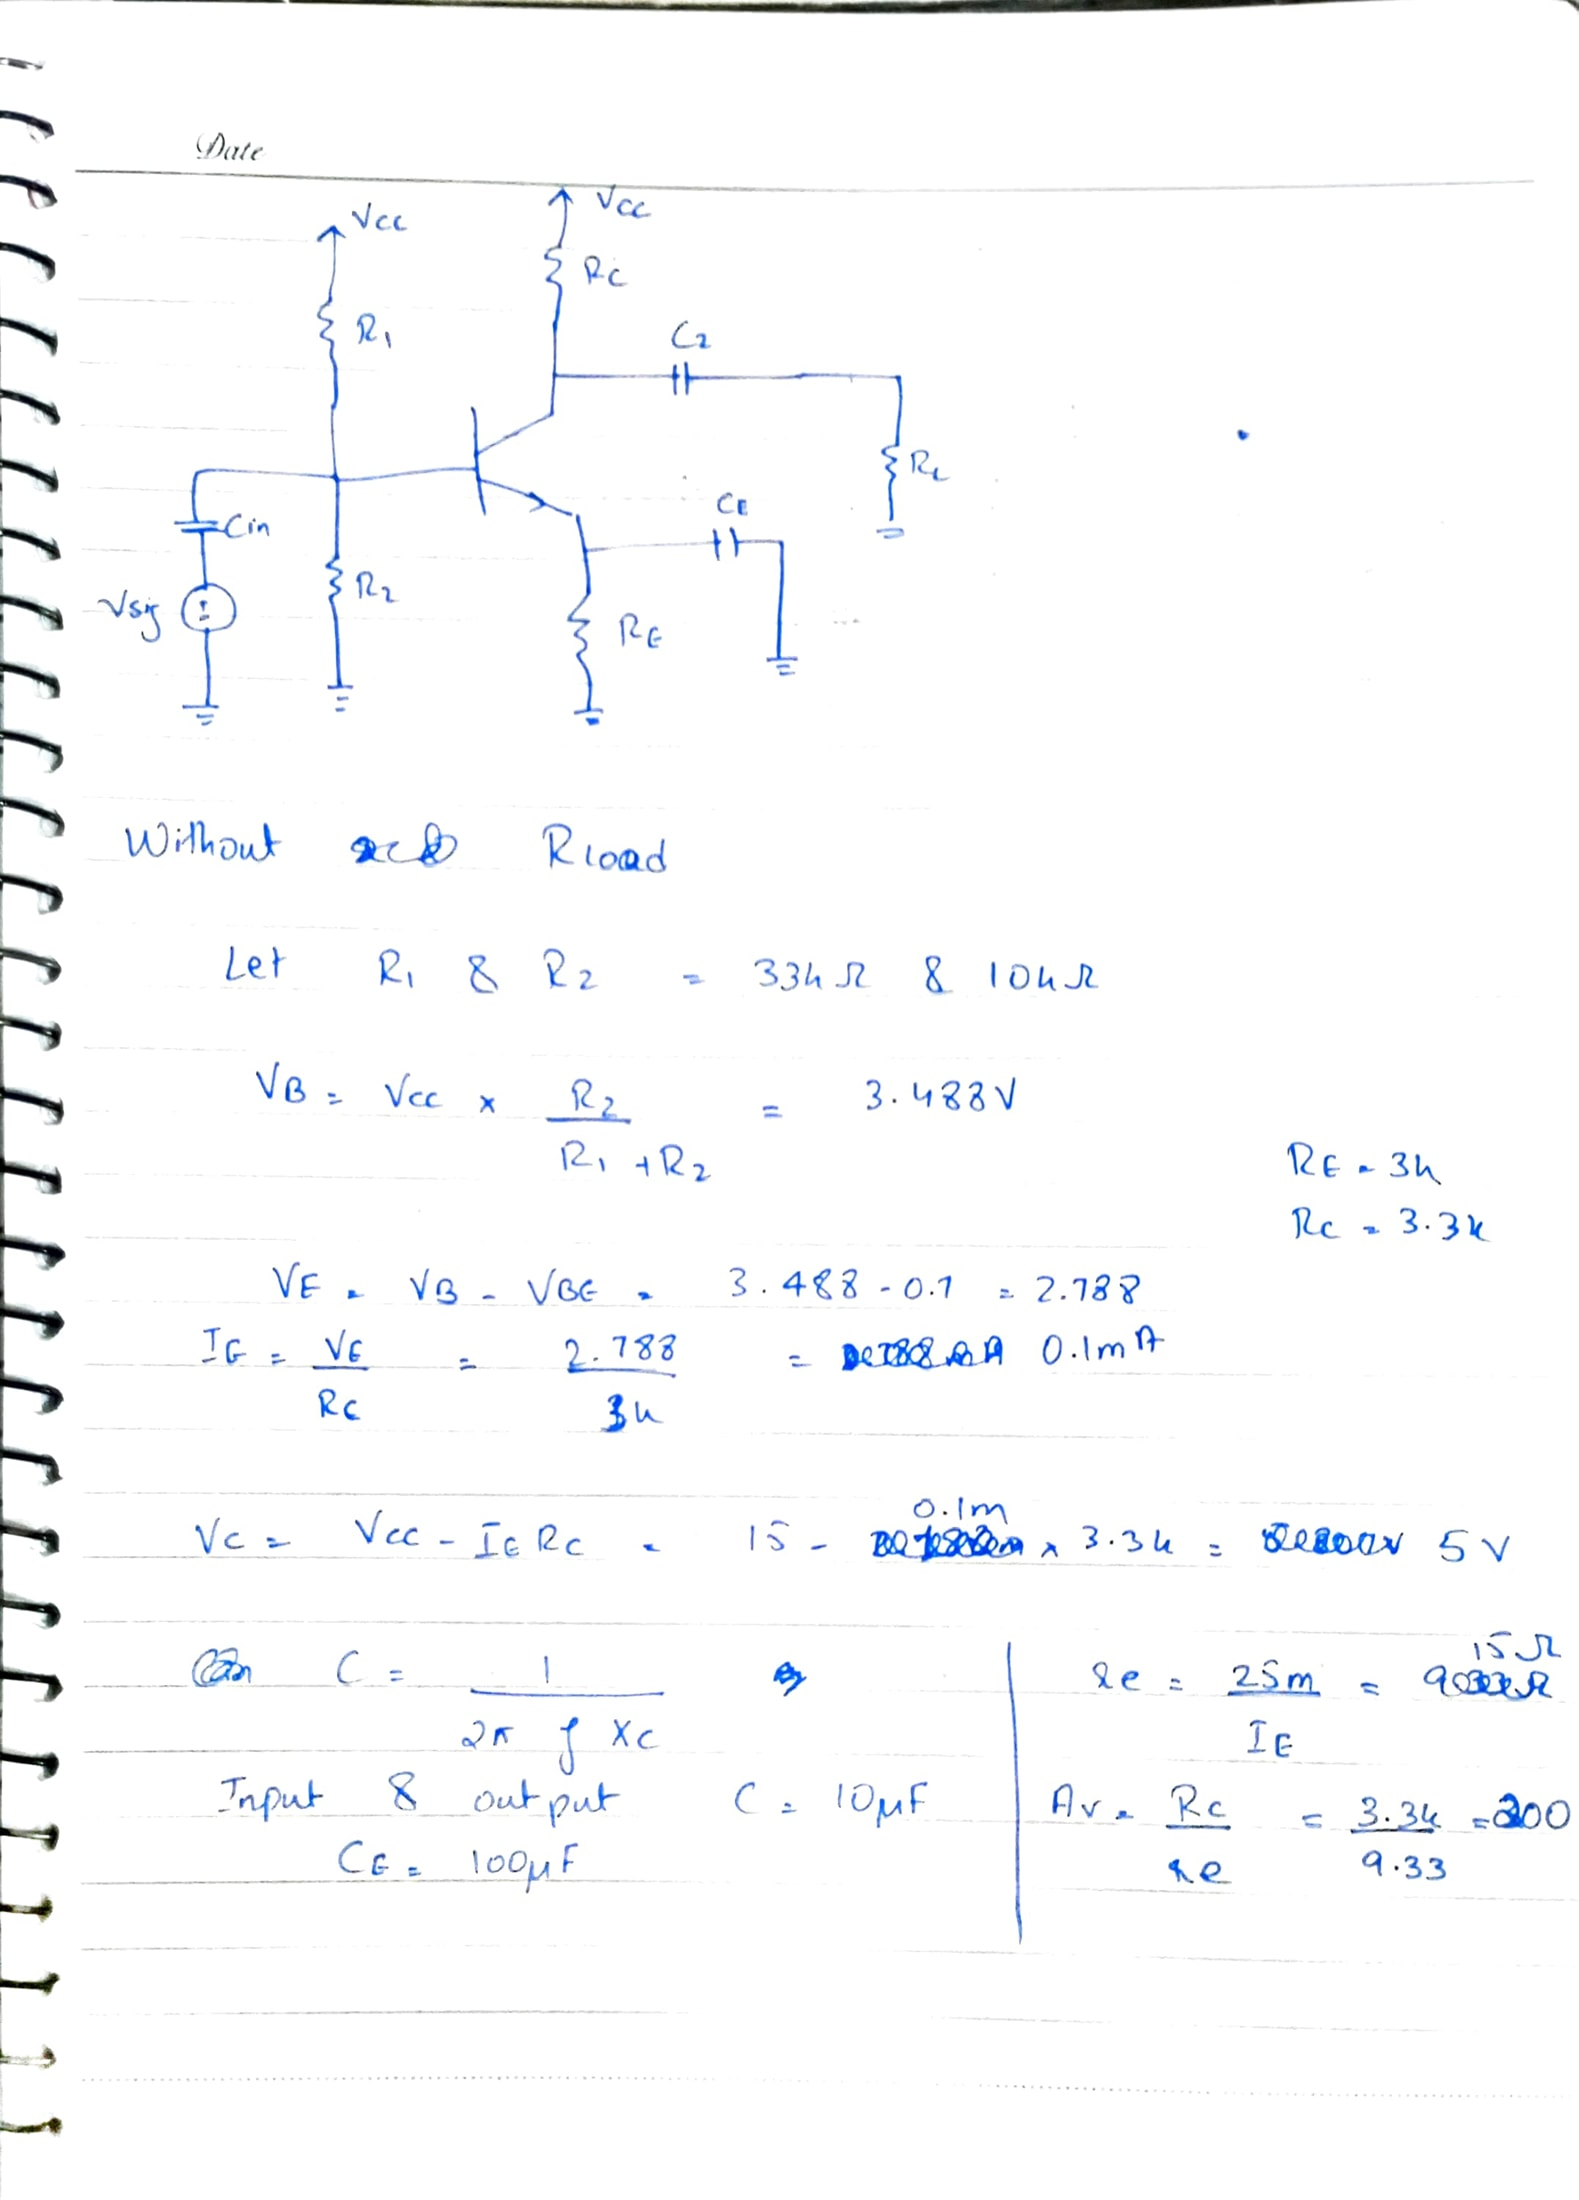 Date
Vcc
Vcc
RC
R1
C2
RL
Cin
CE
R2
Vsig
RE
Without Rload
Let R1 & R2 = 33kΩ & 10kΩ
VB = Vcc × R2 / R1 + R2 = 3.488V
RE = 3k
RC = 3.3k
VE = VB - VBE = 3.488 - 0.7 = 2.788
IE = VE / RE = 2.788 / 3k = 0.1mA
VC = Vcc - IE RC = 15 - 0.1m × 3.3k = 5V
C = 1 / 2π f XC
Input & output C = 10μF
CE = 100μF
re = 25m / IE = 15Ω
Av = RC / re = 3.3k / 9.33 = 200